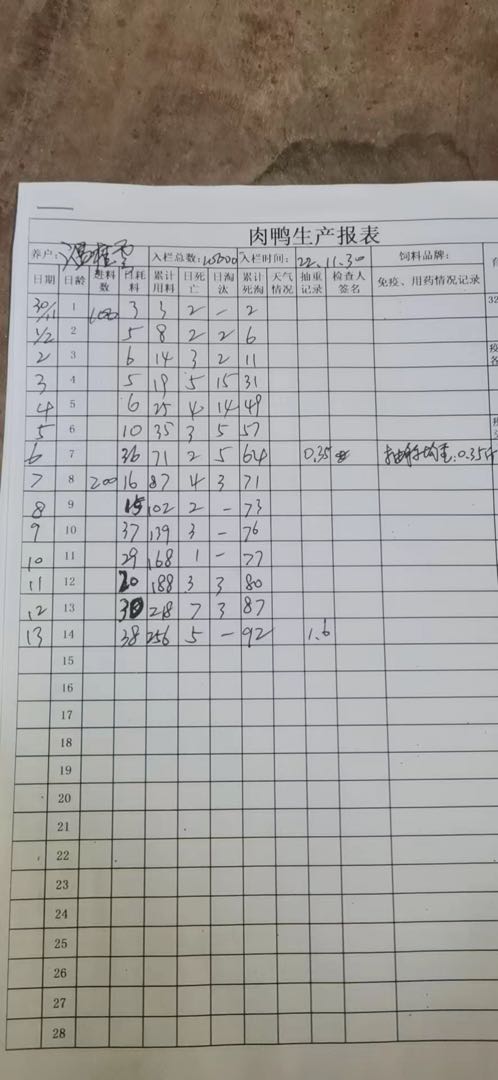 肉鸭生产报表
养户: 入栏总数: 入栏时间: 22.11.30 饲料品牌:
日期 日龄 进料数 日耗料 累计用料 日死亡 日淘汰 累计死淘 天气情况 抽重记录 检查人签名 免疫、用药情况记录
30/11 1 3 3 2 - 2
1/2 2 5 8 2 2 6
2 3 6 14 3 2 11
3 4 5 19 5 15 31
4 5 6 25 4 14 49
5 6 10 35 3 5 57
6 7 36 71 2 5 64 0.35 均重:0.35斤
7 8 200 16 87 4 3 71
8 9 15 102 2 - 73
9 10 37 139 3 - 76
10 11 29 168 1 - 77
11 12 20 188 3 3 80
12 13 30 218 7 3 87
13 14 38 256 5 - 92 1.6
15
16
17
18
19
20
21
22
23
24
25
26
27
28